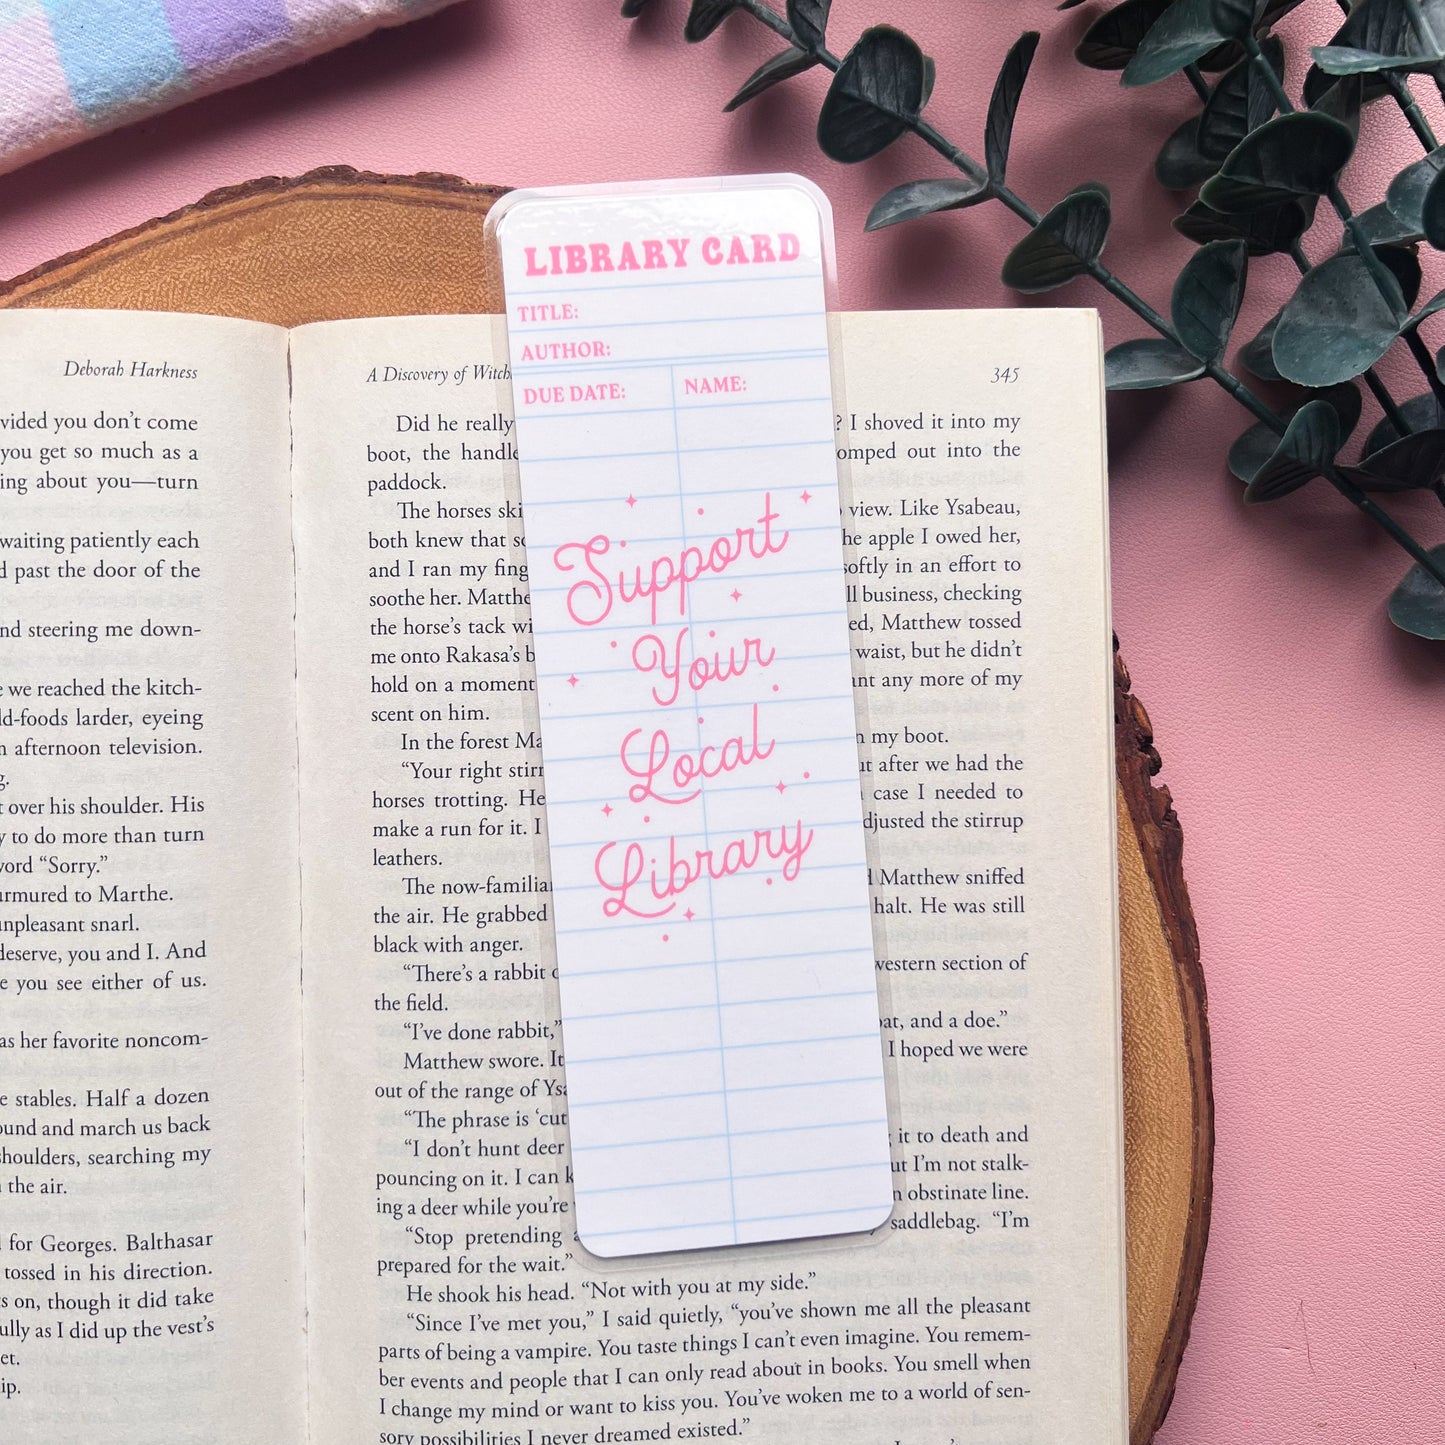 LIBRARY CARD
TITLE:
AUTHOR:
DUE DATE: NAME:
Support
Your
Local
Library
Deborah Harkness
vided you don't come
you get so much as a
ing about you—turn
waiting patiently each
past the door of the
nd steering me down-
we reached the kitch-
ld-foods larder, eyeing
afternoon television.
over his shoulder. His
to do more than turn
word “Sorry.”
urmured to Marthe.
unpleasant snarl.
deserve, you and I. And
you see either of us.
as her favorite noncom-
stables. Half a dozen
ound and march us back
shoulders, searching my
the air.
for Georges. Balthasar
tossed in his direction.
s on, though it did take
ully as I did up the vest's
et.
ip.
A Discovery of Witch 345
Did he really ? I shoved it into my
boot, the handle omped out into the
paddock.
The horses ski view. Like Ysabeau,
both knew that so he apple I owed her,
and I ran my fing softly in an effort to
soothe her. Matthe ll business, checking
the horse's tack wi ed, Matthew tossed
me onto Rakasa's b waist, but he didn't
hold on a moment ant any more of my
scent on him.
In the forest Ma n my boot.
“Your right stirr ut after we had the
horses trotting. He case I needed to
make a run for it. I djusted the stirrup
leathers.
The now-familiar Matthew sniffed
the air. He grabbed halt. He was still
black with anger.
“There's a rabbit western section of
the field.
“I've done rabbit,” oat, and a doe.”
Matthew swore. It I hoped we were
out of the range of Ysa
“The phrase is ‘cut it to death and
“I don't hunt deer ut I'm not stalk-
pouncing on it. I can k n obstinate line.
ing a deer while you're saddlebag. “I'm
“Stop pretending
prepared for the wait.”
He shook his head. “Not with you at my side.”
“Since I've met you,” I said quietly, “you've shown me all the pleasant
parts of being a vampire. You taste things I can't even imagine. You remem-
ber events and people that I can only read about in books. You smell when
I change my mind or want to kiss you. You've woken me to a world of sen-
sory possibilities I never dreamed existed.”